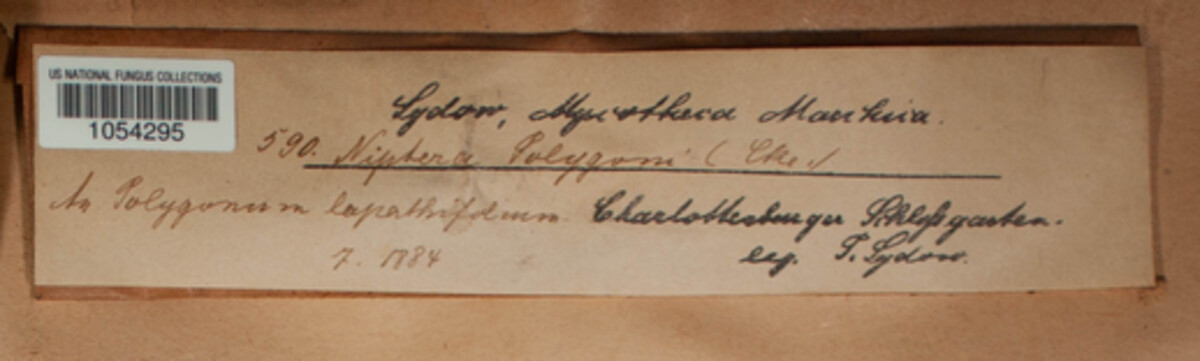 US NATIONAL FUNGUS COLLECTIONS
1054295
Sydow, Mycotheca Marchica.
590. Niptera Polygoni (Cke.)
An Polygonum lapathifolium. Charlottenburger Schloßgarten.
7. 1884 leg. P. Sydow.